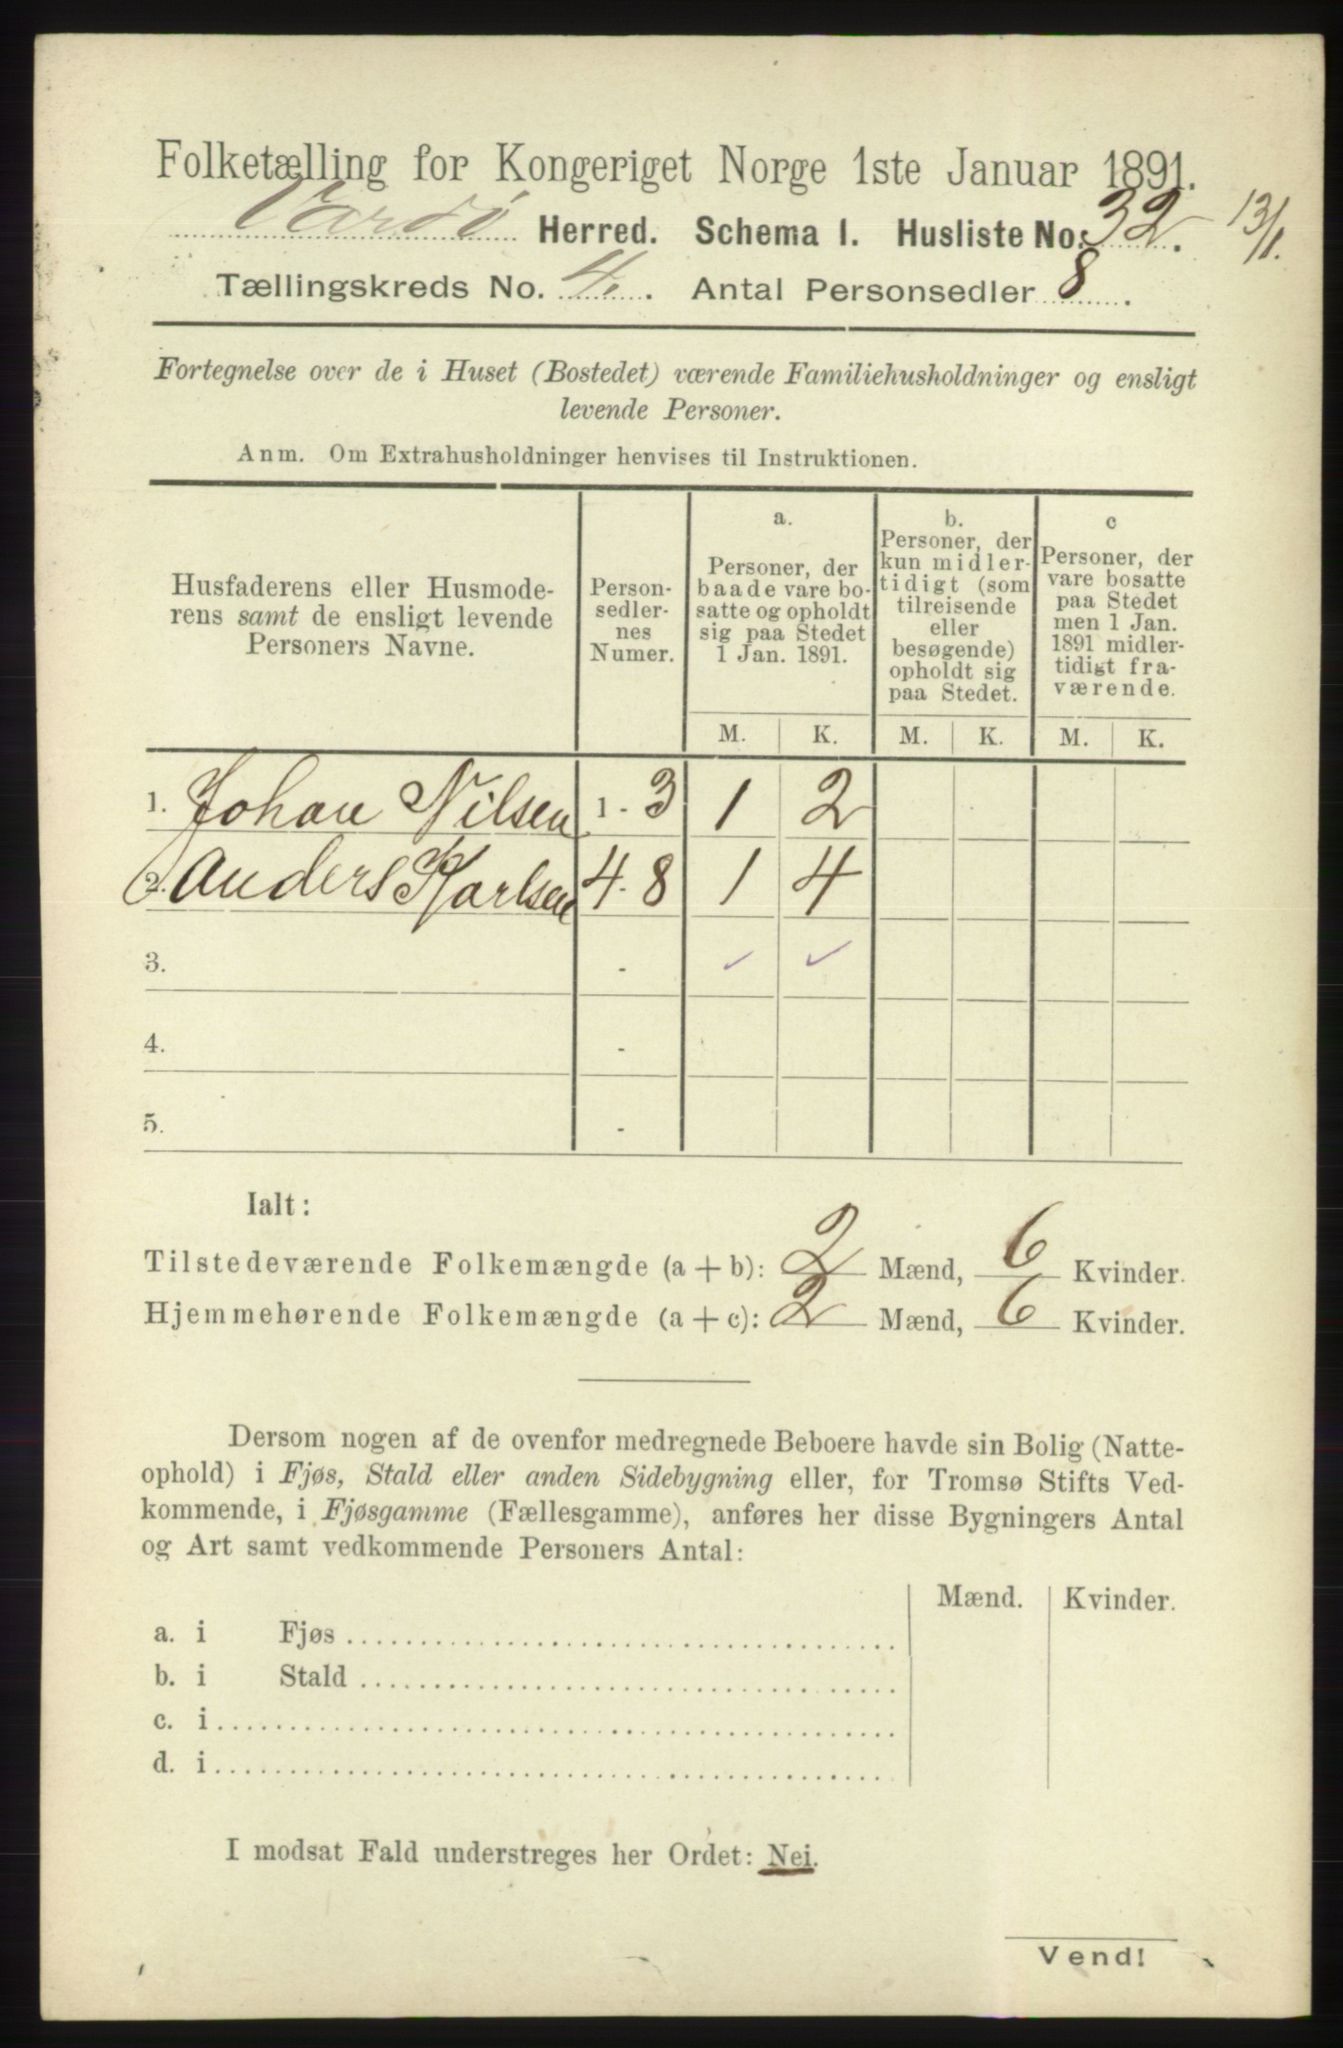 Folketælling for Kongeriget Norge 1ste Januar 1891.
Vardø Herred. Schema 1. Husliste No. 32. 13/1.
Tællingskreds No. 4. Antal Personsedler 8.
Fortegnelse over de i Huset (Bostedet) værende Familiehusholdninger og ensligt
levende Personer.
Anm. Om Extrahusholdninger henvises til Instruktionen.
Husfaderens eller Husmode-
rens samt de ensligt levende
Personers Navne.
Person-
sedler-
nes
Numer.
a.
Personer, der
baade vare bo-
satte og opholdt
sig paa Stedet
1 Jan. 1891.
b.
Personer, der
kun midler-
tidigt (som
tilreisende
eller
besøgende)
opholdt sig
paa Stedet.
c
Personer, der
vare bosatte
paa Stedet
men 1 Jan.
1891 midler-
tidigt fra-
værende.
M. K. M. K. M. K.
1. Johan Nilsen 1 - 3 1 2
2. Anders Karlsen 4 - 8 1 4
3. - ✓ ✓
4. -
5. -
Ialt:
Tilstedeværende Folkemængde (a + b): 2 Mænd, 6 Kvinder.
Hjemmehørende Folkemængde (a + c): 2 Mænd, 6 Kvinder.
Dersom nogen af de ovenfor medregnede Beboere havde sin Bolig (Natte-
ophold) i Fjøs, Stald eller anden Sidebygning eller, for Tromsø Stifts Ved-
kommende, i Fjøsgamme (Fællesgamme), anføres her disse Bygningers Antal
og Art samt vedkommende Personers Antal:
Mænd. Kvinder.
a. i Fjøs
b. i Stald
c. i
d. i
I modsat Fald understreges her Ordet: Nei.
Vend!